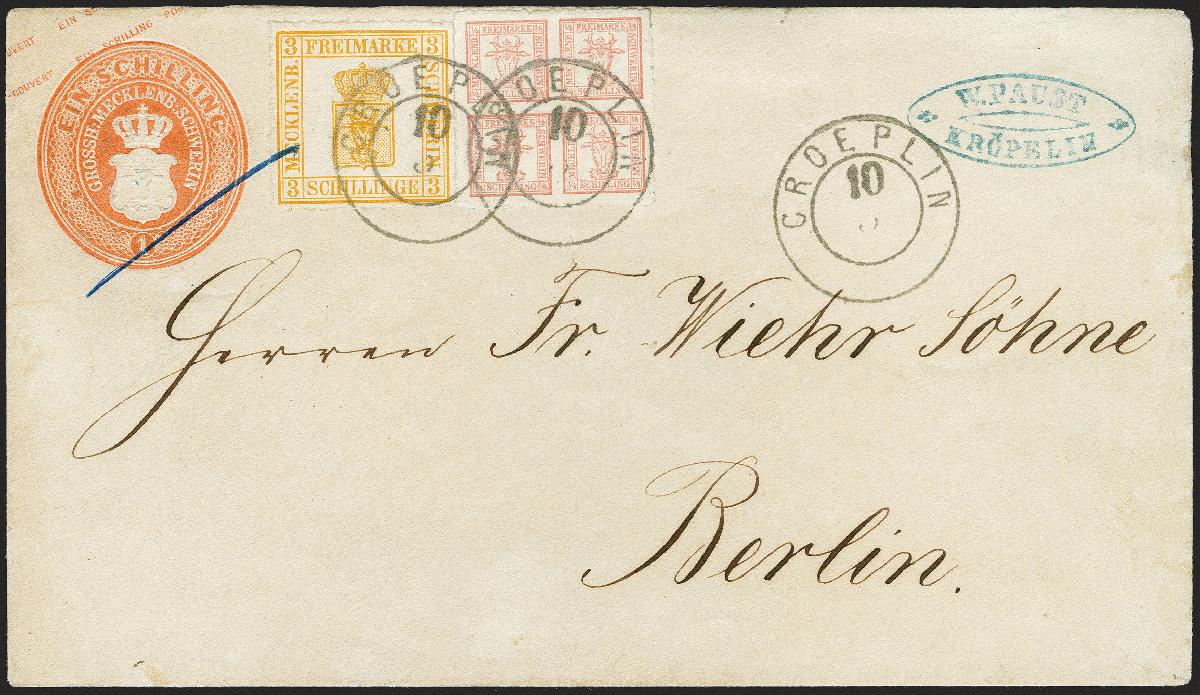 COUVERT EIN SCHILLING POST
COUVERT EIN SCHILLING
EIN SCHILLING
GROSSH. MECKLENB. SCHWERIN
1
3 FREIMARKE 3
MECKLENB. SCHWERIN
3 SCHILLINGE 3
4/4 FREIMARKE 4/4
MECKLENB. SCHWERIN
4/4 SCHILLING 4/4
CROEPLIN
10
CROEPLIN
10
CROEPLIN
10
W. PAUST
KRÖPELIN
Herren Fr. Wiehr Söhne
Berlin.